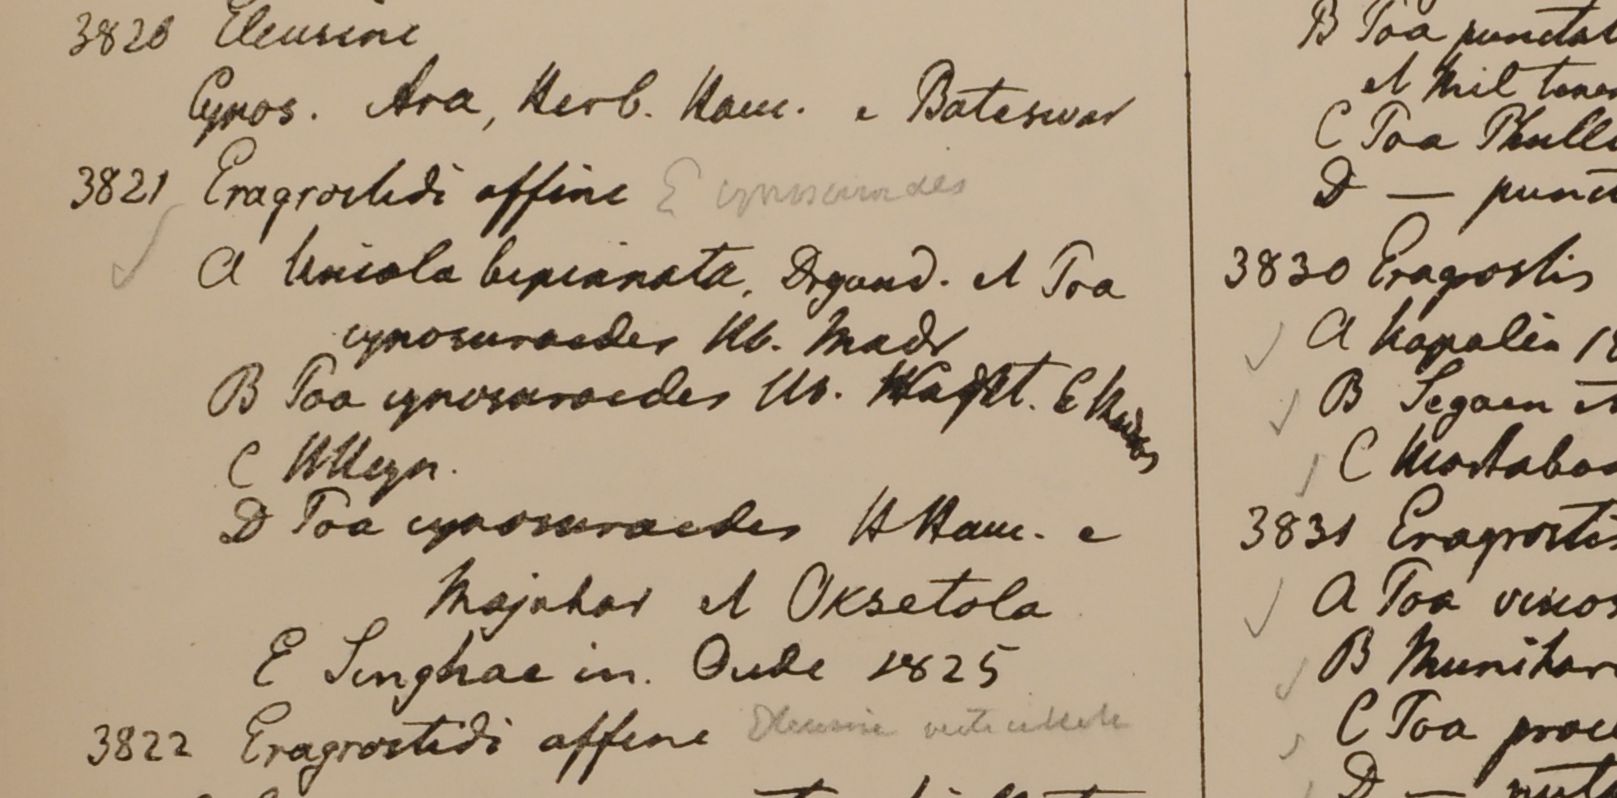 3820 Eleusine
Cynos. Ara, Herb. Ham. e Bateswar
3821 Eragrostidi affine E cynosuroides
A Uniola bipinnata, Dryand. et Poa
cynosuroides Hb. Madr
B Poa cynosuroides Hb. Wight. E
C HHeyn.
D Poa cynosuroides HHam. e
Majahar et Oksetola
E Singhae in. Oude 1825
3822 Eragrostidi affine Eleusine verticillata
B Poa punctat
et Mil tener
C Poa Phull
D — punct
3830 Eragrostis
A 
B Segaen et
C 
3831 Eragrostis
A Poa viscos
B Munihar
C Poa proce
D — nut